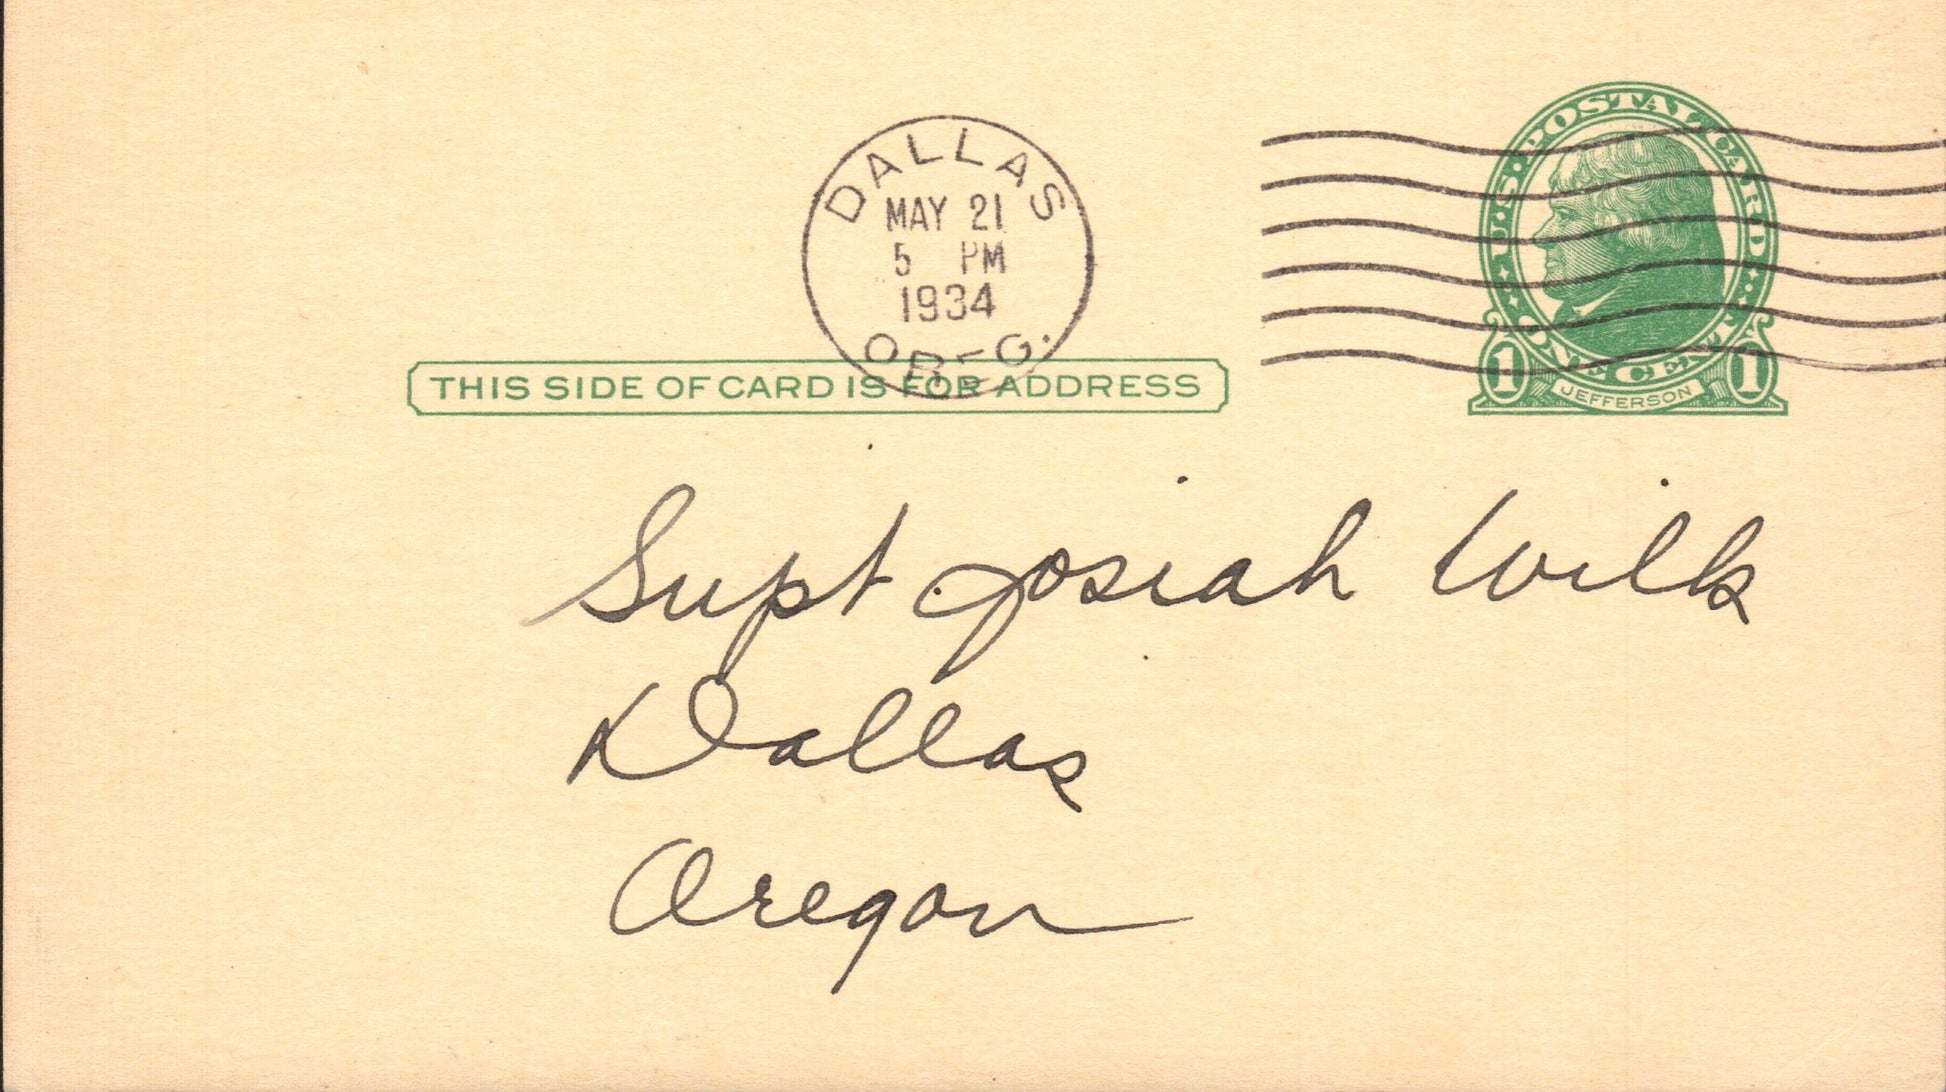 DALLAS
MAY 21
5 PM
1934
OREG.
U.S. POSTAL CARD
ONE CENT
1 1
JEFFERSON
THIS SIDE OF CARD IS FOR ADDRESS
Supt Josiah Wills
Dallas
Oregon